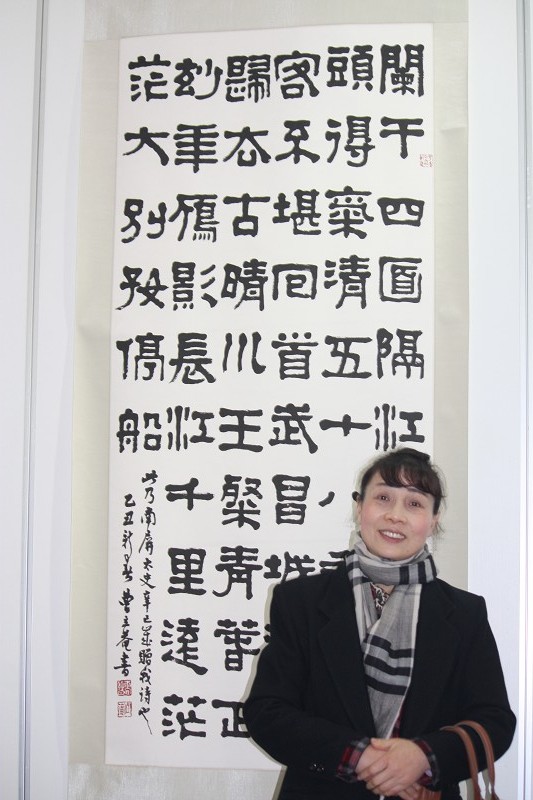 闌干四面隔江
頭得氣清五十八
客不堪回首武昌城
歸去古晴川王粲青春正
玅年鴈影長江千里遠茫
茫大別好停船
此乃南屏太史辛巳歲贈我詩也
乙丑新春曹立庵書